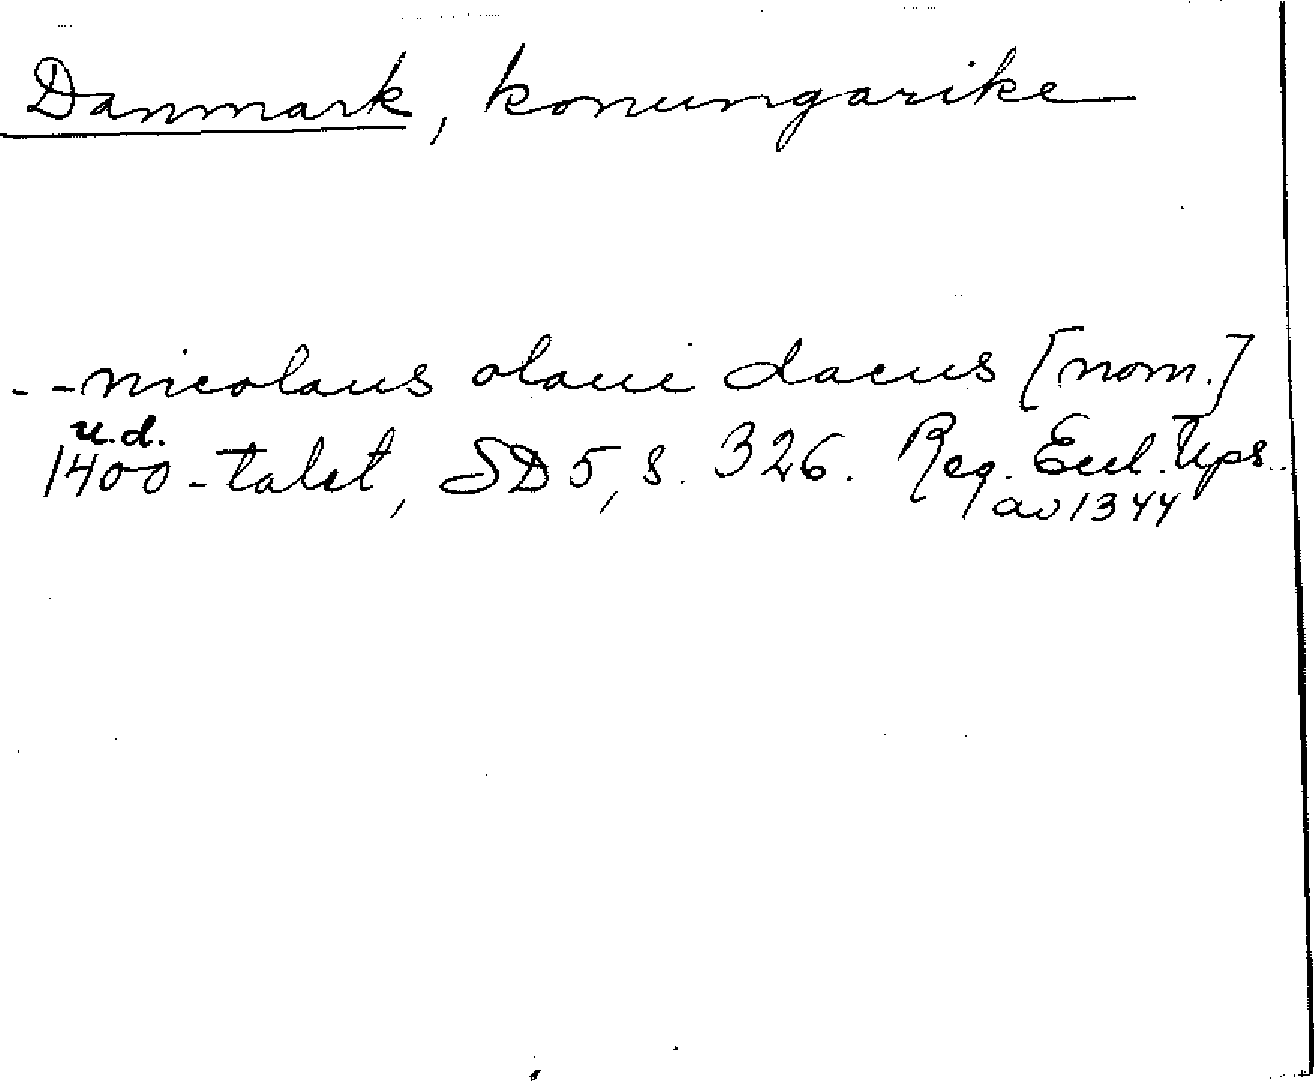 Danmark, konungarike
- - nicolaus olaui dacus [nom.]
u.d.
1400-talet, SD 5, s. 326. Reg. Eccl. Ups.
av 1344